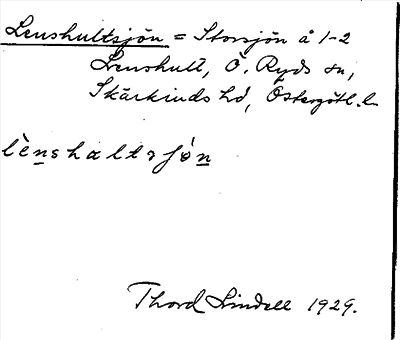 Lenshultsjön = Storsjön å 1-2
Lenshult, Ö. Ryds sn,
Skärkinds hd, Östergötl. l.
lènshaltsjó̱n
Thord Lindell 1929.